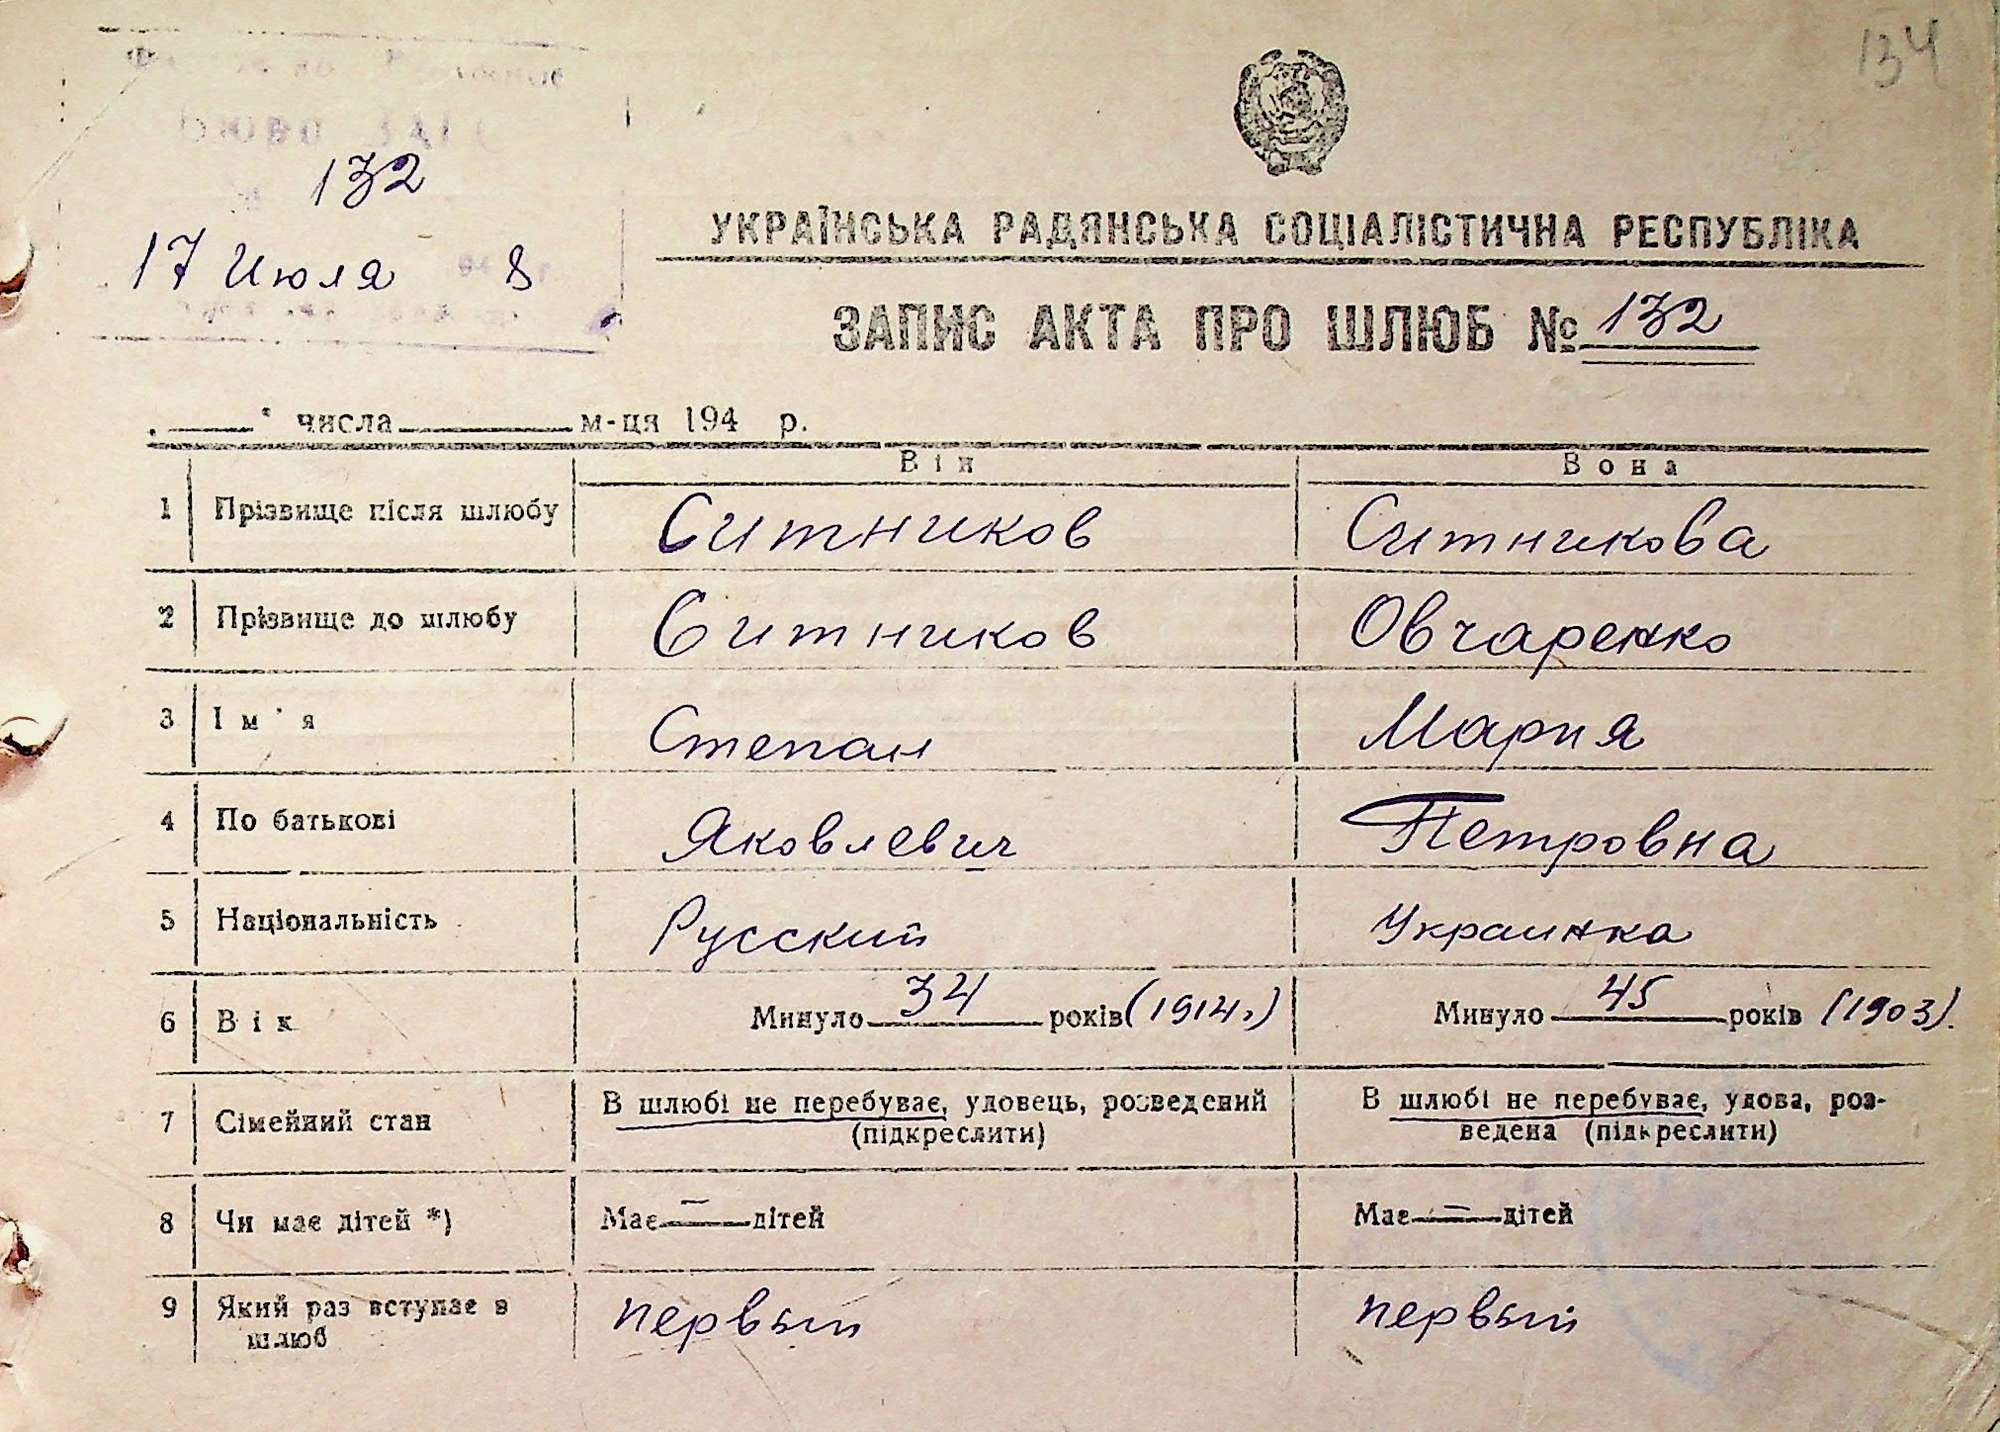 134
132
17 Июля 8
УКРАЇНСЬКА РАДЯНСЬКА СОЦІАЛІСТИЧНА РЕСПУБЛІКА
ЗАПИС АКТА ПРО ШЛЮБ № 132
" " числа м-ця 194 р.
Він Вона
1 Прізвище після шлюбу Ситников Ситникова
2 Прізвище до шлюбу Ситников Овчаренко
3 Ім'я Степан Мария
4 По батькові Яковлевич Петровна
5 Національність Русский Украинка
6 Вік Минуло 34 років (1914г.) Минуло 45 років (1903).
7 Сімейний стан В шлюбі не перебуває, удовець, розведений В шлюбі не перебуває, удова, роз-
(підкреслити) ведена (підкреслити)
8 Чи має дітей *) Має — дітей Має — дітей
9 Який раз вступає в первый первый
шлюб